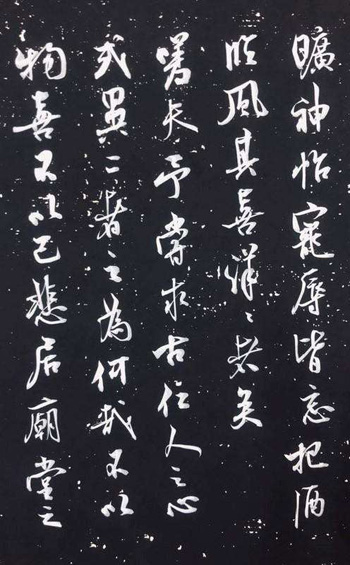 曠神怡寵辱皆忘把酒
臨風其喜洋〻者矣
嗟夫予嘗求古仁人之心
或異二者之為何哉不以
物喜不以己悲居廟堂之